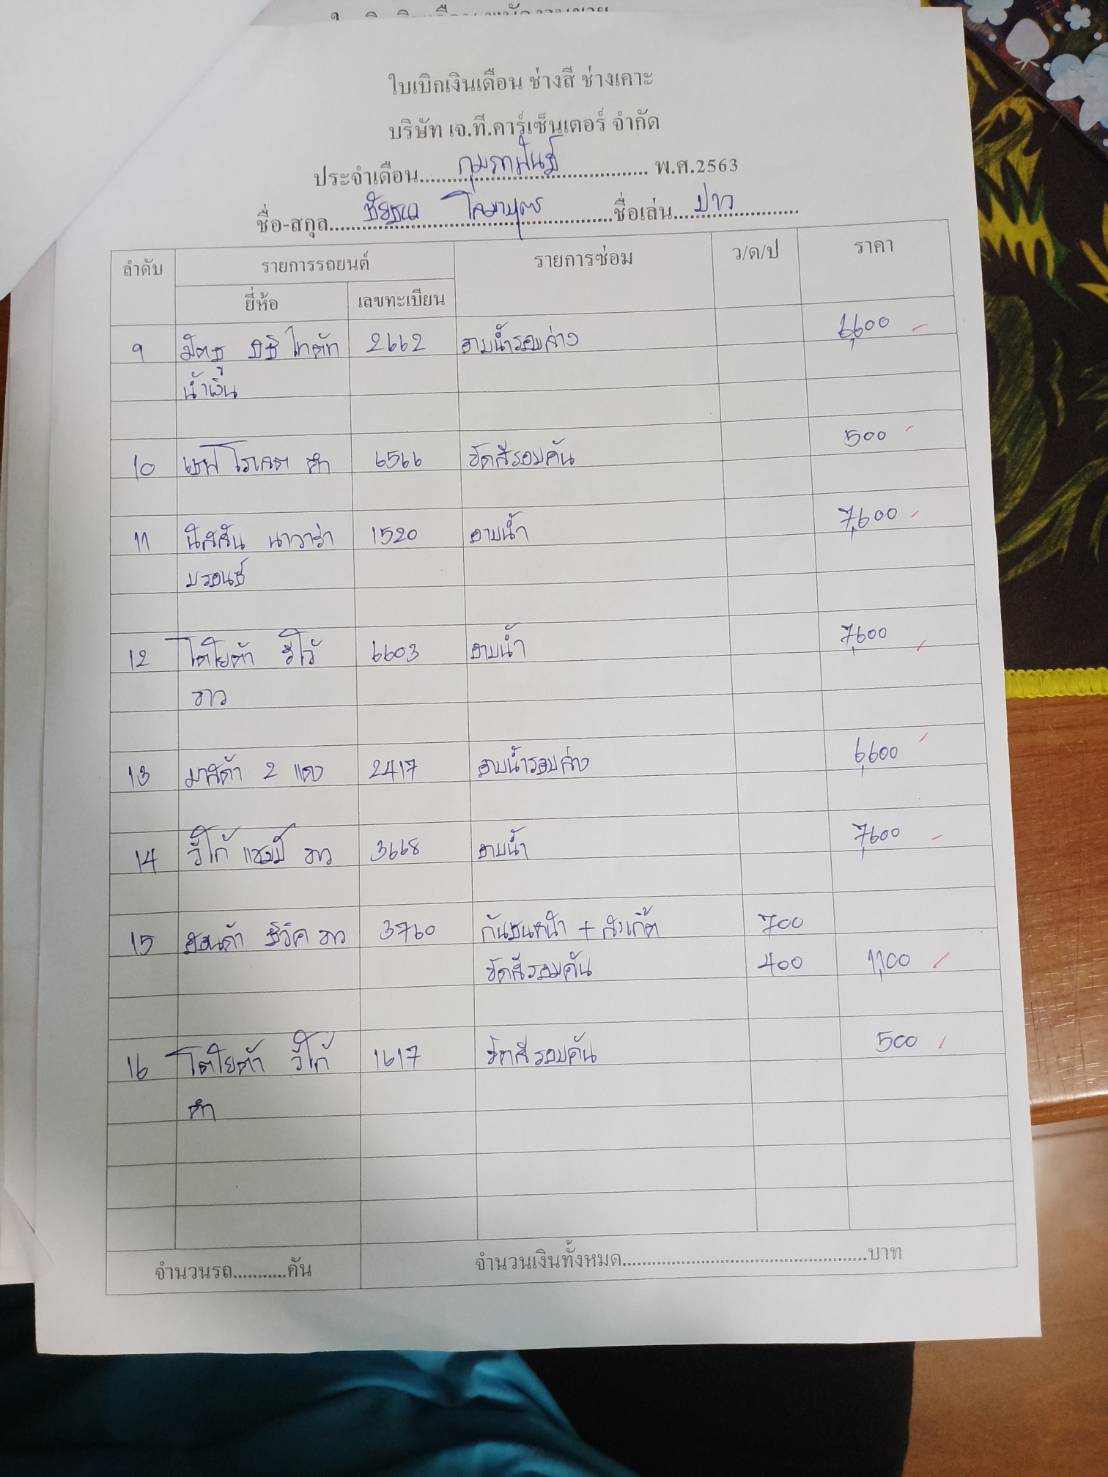 ใบเบิกเงินเดือน ช่างสี ช่างเคาะ
บริษัท เจ.ที.คาร์เซ็นเตอร์ จำกัด
ประจำเดือน กุมภาพันธ์ พ.ศ.2563
ชื่อ-สกุล ชื่อเล่น ปาว
ลำดับ รายการรถยนต์ รายการซ่อม ว/ด/ป ราคา
ยี่ห้อ เลขทะเบียน
9 มิตซู มิชิ ไทตัท 2662 อาบน้ำรอบล่าง 6,600
น้ำเงิน
10 เชฟโรเลต ดำ 6566 ขัดสีรอบคัน 500
11 นิสสัน นาวาร่า 1520 อาบน้ำ 7,600
บรอนซ์
12 โตโยต้า รีโว้ 6603 อาบน้ำ 7,600
ขาว
13 มาสด้า 2 แดง 2417 อาบน้ำรอบล่าง 6,600
14 วีโก้ แชมป์ ขาว 3668 อาบน้ำ 7,600
15 ฮอนด้า ซีวิค ขาว 3760 กันชนหน้า + สเกิ๊ต 700
ขัดสีรอบคัน 400 1,100
16 โตโยต้า วีโก้ 1617 ขัดสีรอบคัน 500
ดำ
จำนวนรถ...........คัน จำนวนเงินทั้งหมด............................................................บาท